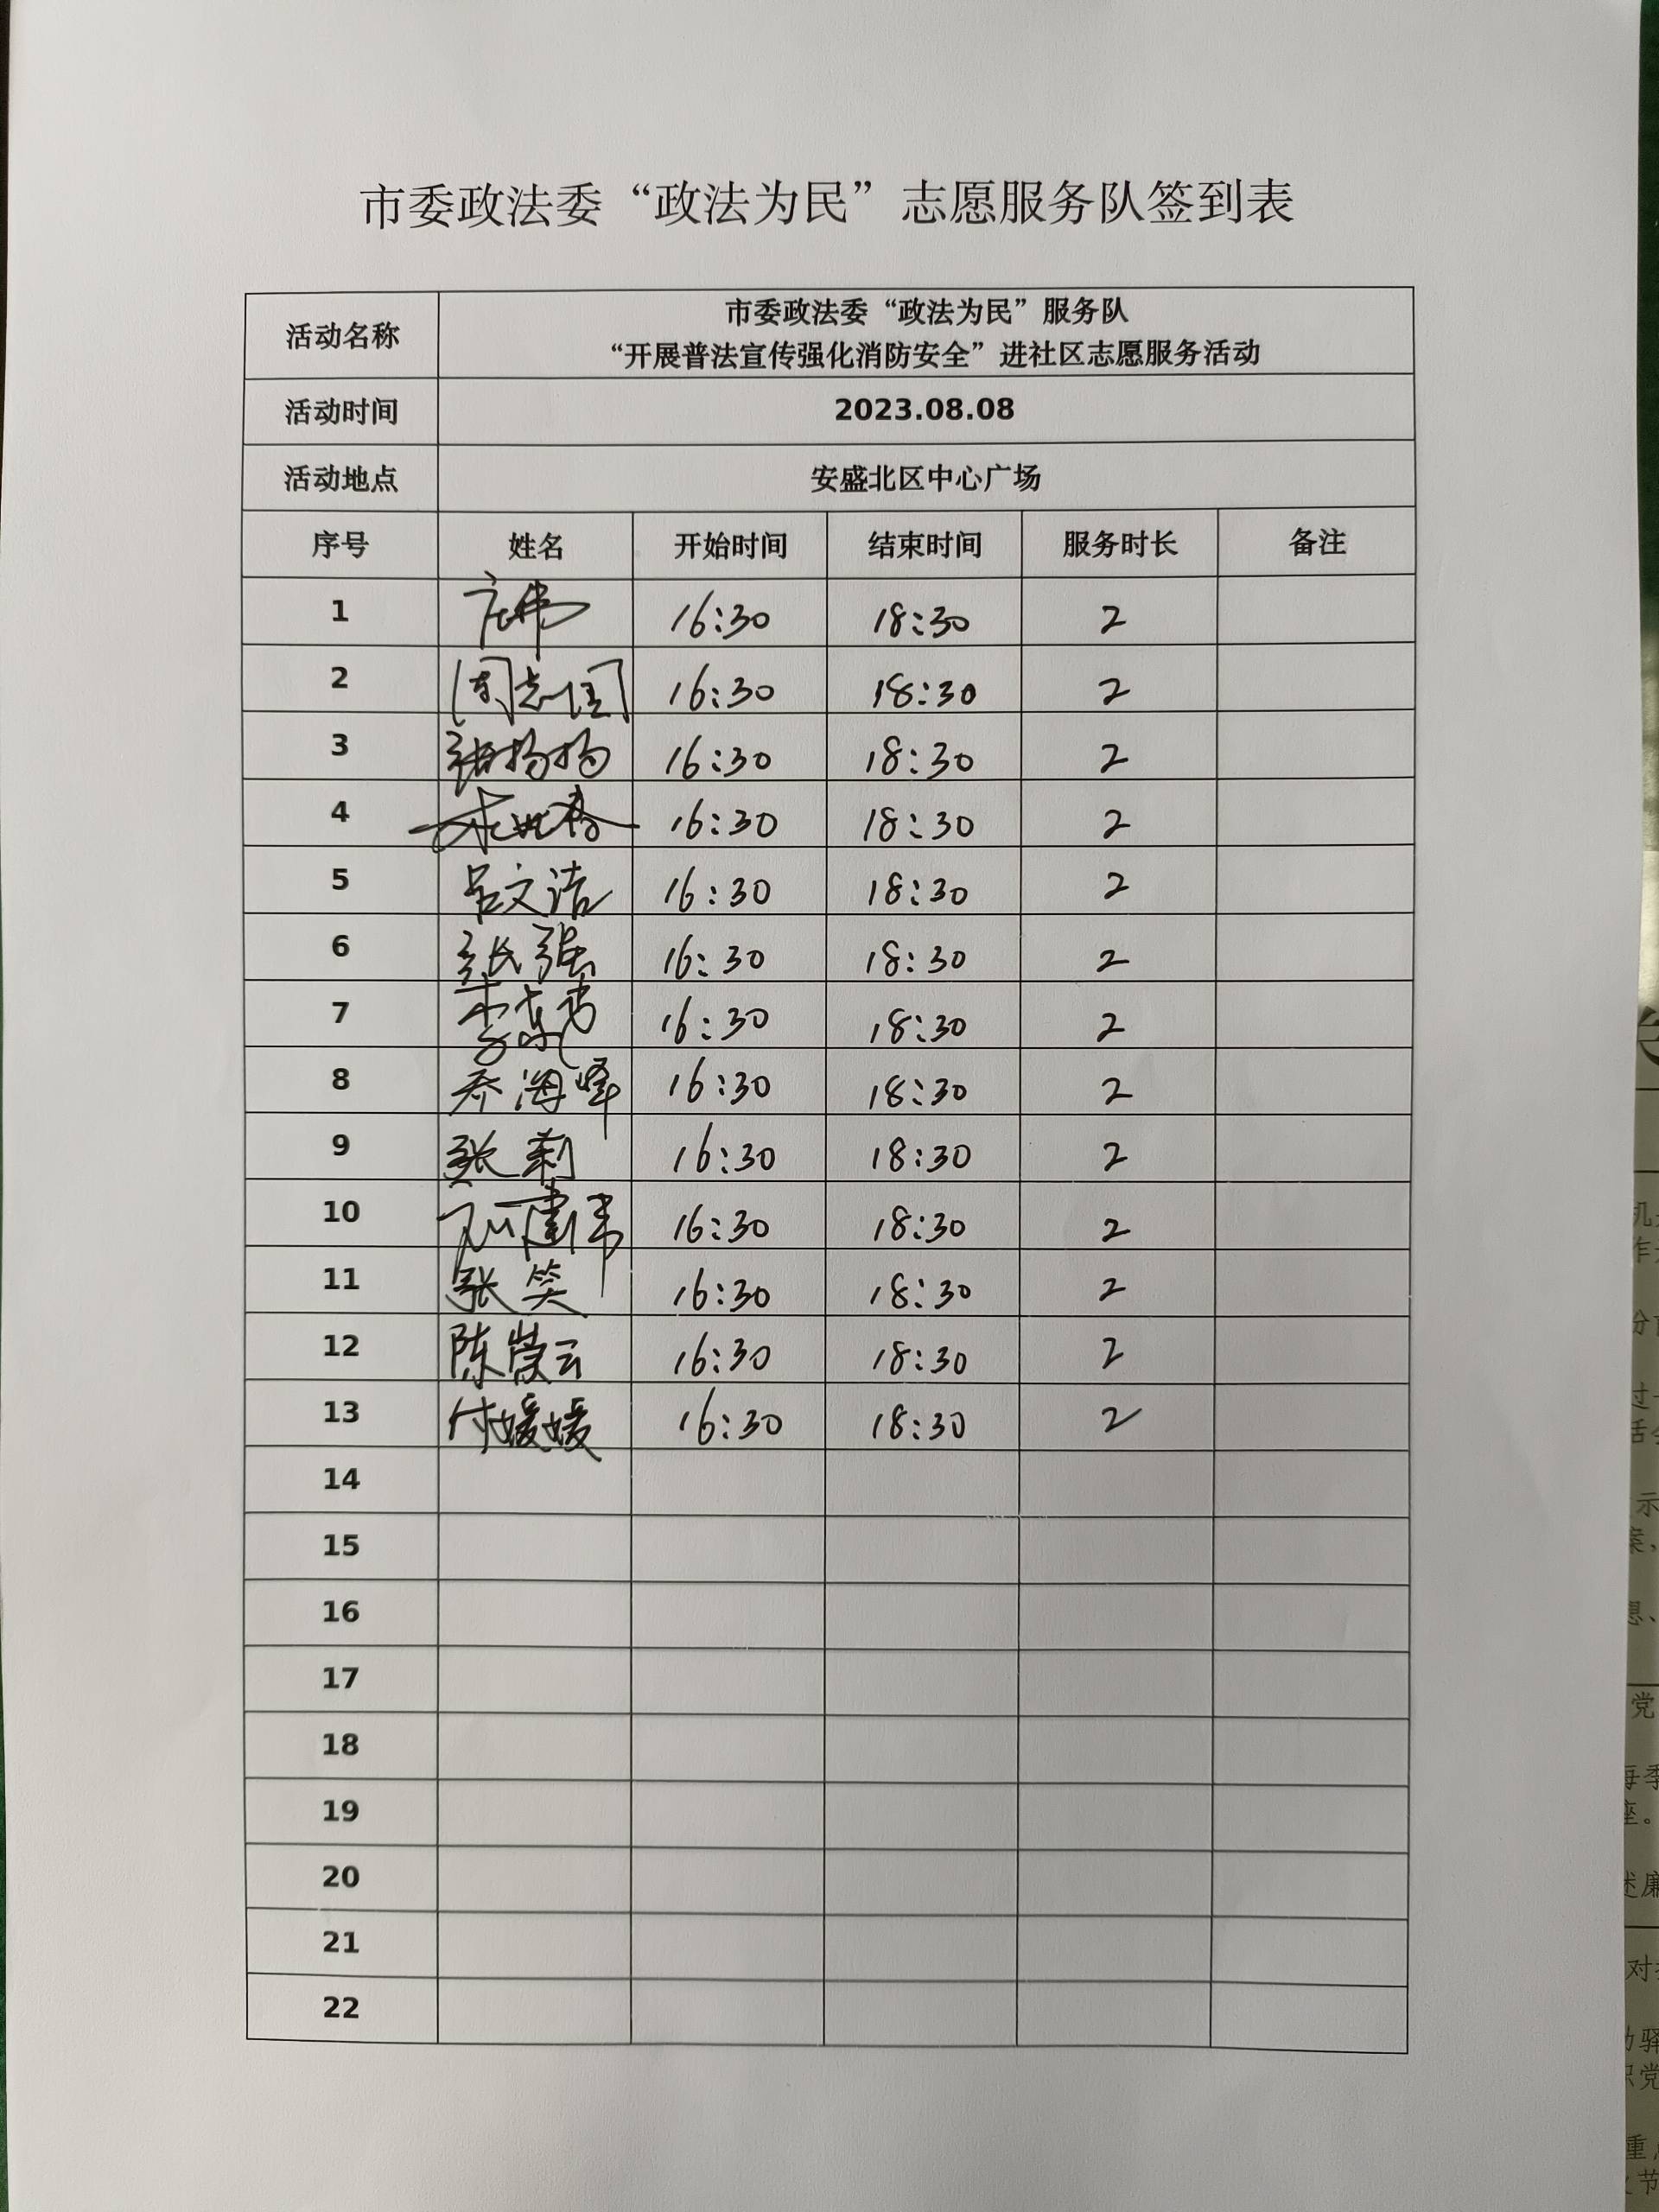 市委政法委“政法为民”志愿服务队签到表
活动名称
市委政法委“政法为民”服务队
“开展普法宣传强化消防安全”进社区志愿服务活动
活动时间 2023.08.08
活动地点 安盛北区中心广场
序号 姓名 开始时间 结束时间 服务时长 备注
1 16:30 18:30 2
2 周志国 16:30 18:30 2
3 张扬扬 16:30 18:30 2
4 16:30 18:30 2
5 吕文洁 16:30 18:30 2
6 张强 16:30 18:30 2
7 16:30 18:30 2
8 乔海峰 16:30 18:30 2
9 张莉 16:30 18:30 2
10 建伟 16:30 18:30 2
11 张笑 16:30 18:30 2
12 陈崇云 16:30 18:30 2
13 付媛媛 16:30 18:30 2
14
15
16
17
18
19
20
21
22